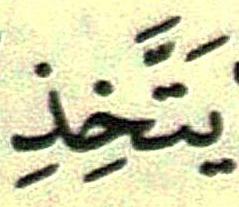 يَتَّخِذِ